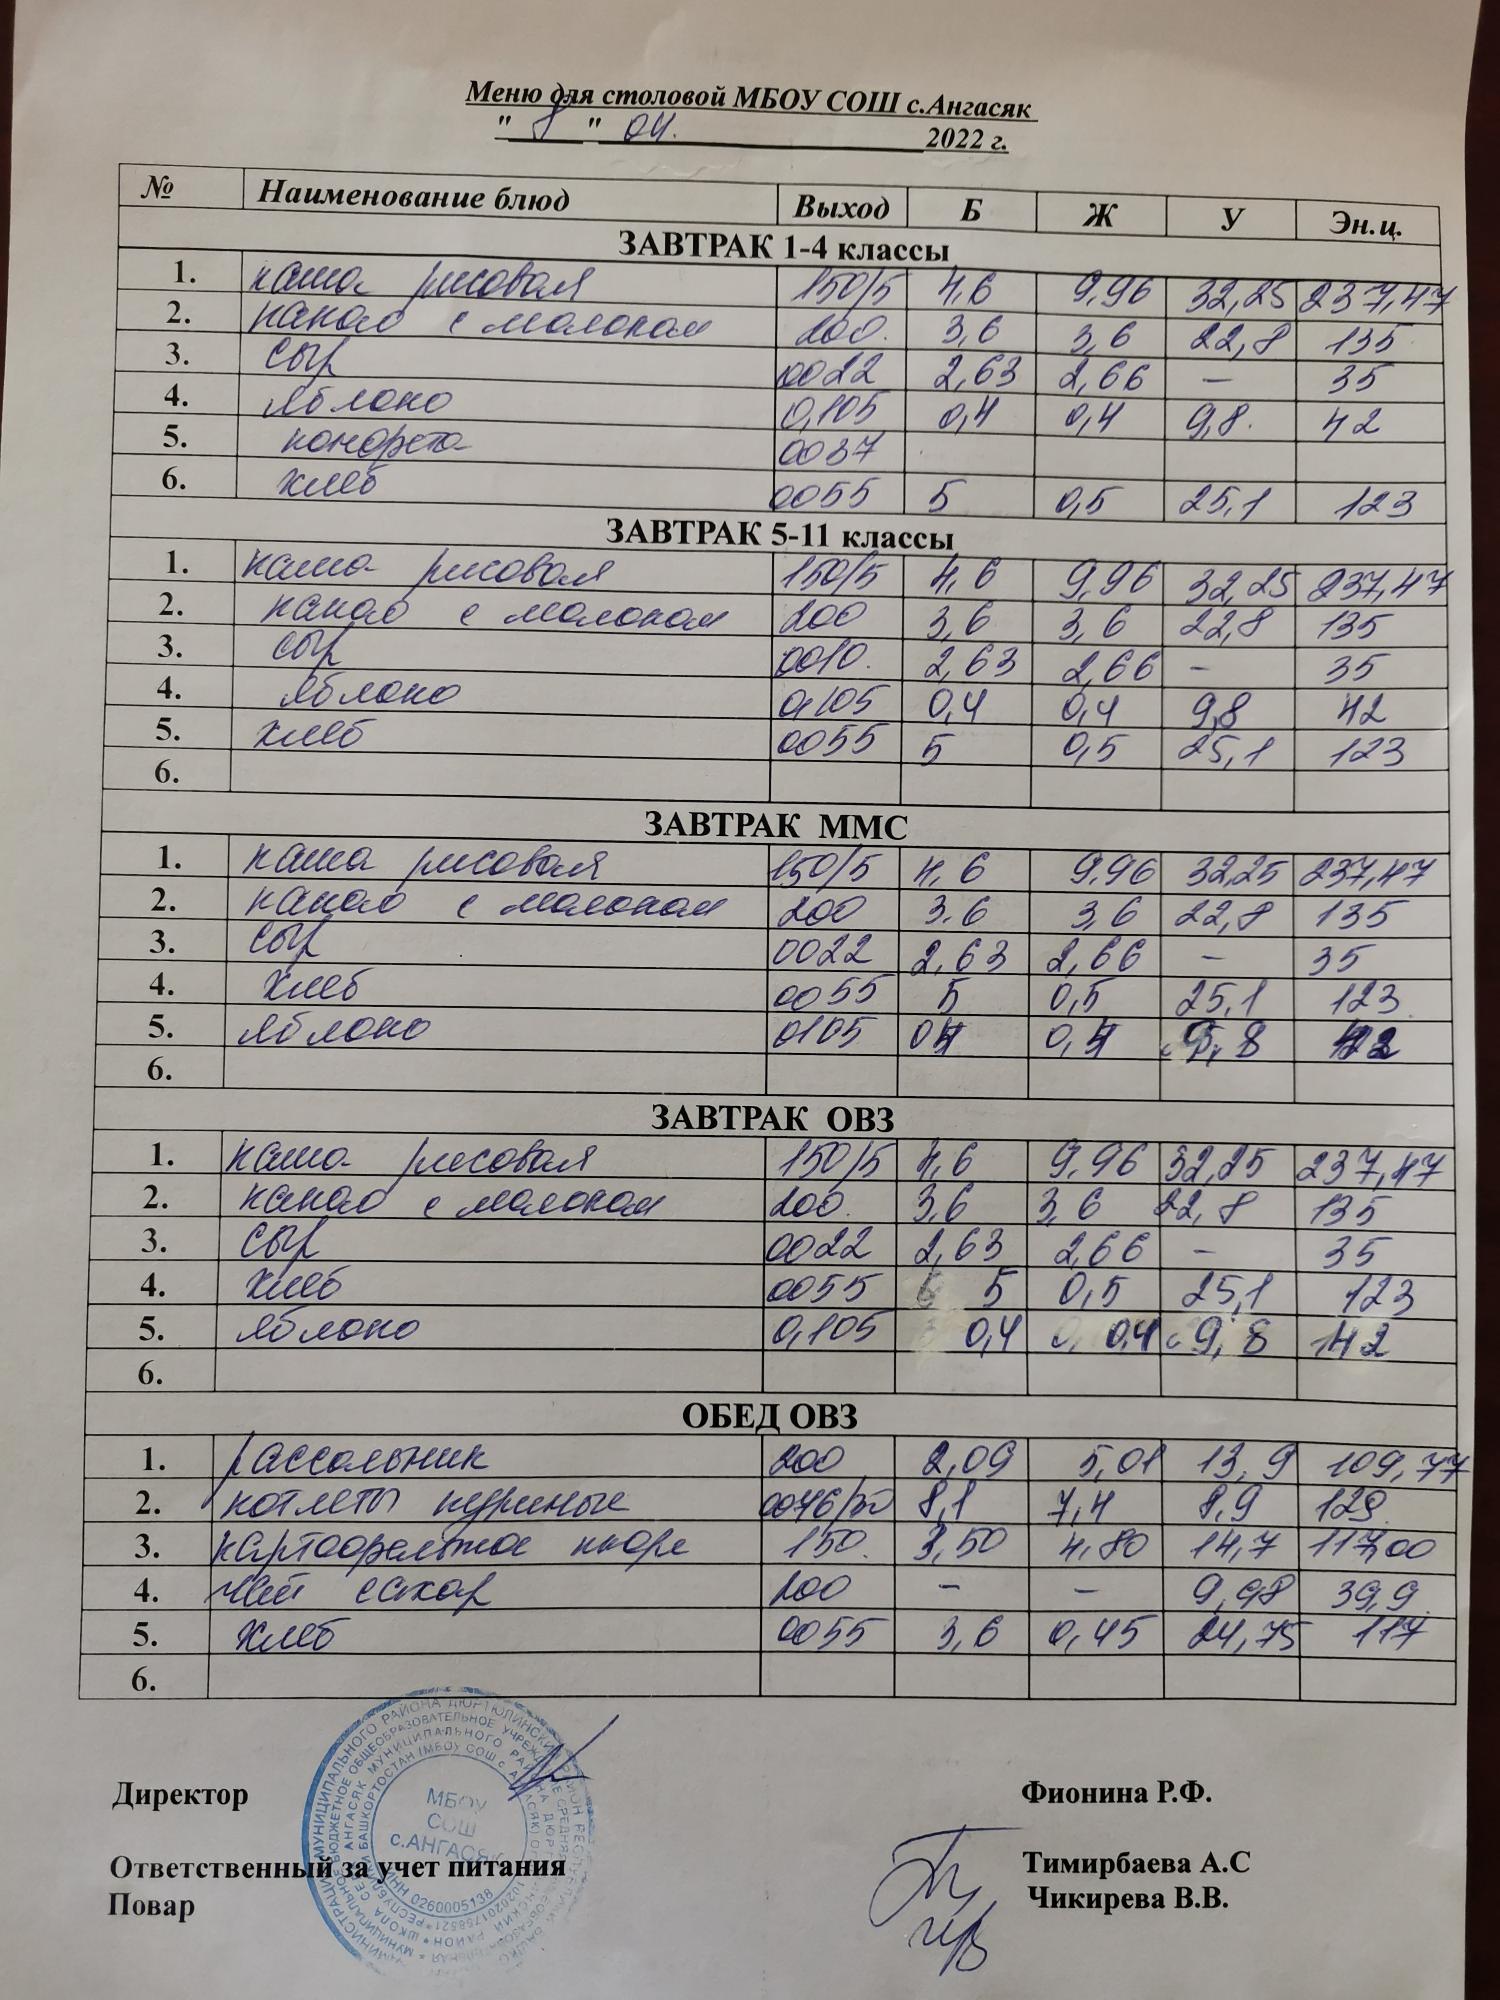 Меню для столовой МБОУ СОШ с.Ангасяк
" 8 " 04. 2022 г.
№ Наименование блюд Выход Б Ж У Эн.ц.
ЗАВТРАК 1-4 классы
1. каша рисовая 150/5 4,6 9,96 32,25 237,47
2. какао с молоком 200. 3,6 3,6 22,8 135
3. сыр 0022 2,63 2,66 – 35
4. яблоко 0,105 0,4 0,4 9,8. 42
5. конфета 0037
6. хлеб 0055 5 0,5 25,1 123
ЗАВТРАК 5-11 классы
1. каша рисовая 150/5 4,6 9,96 32,25 237,47
2. какао с молоком 200 3,6 3,6 22,8 135
3. сыр 0010. 2,63 2,66 – 35
4. яблоко 0,105 0,4 0,4 9,8 42
5. хлеб 0055 5 0,5 25,1 123
6.
ЗАВТРАК ММС
1. каша рисовая 150/5 4,6 9,96 32,25 237,47
2. какао с молоком 200 3,6 3,6 22,8 135
3. сыр 0022 2,63 2,66 – 35
4. хлеб 0055 5 0,5 25,1 123
5. яблоко 0105 04 0,4 9,8 42
6.
ЗАВТРАК ОВЗ
1. каша рисовая 150/5 4,6 9,96 32,25 237,47
2. какао с молоком 200. 3,6 3,6 22,8 135
3. сыр 0022 2,63 2,66 – 35
4. хлеб 0055 5 0,5 25,1 123
5. яблоко 0,105 0,4 0,4 9,8 42
6.
ОБЕД ОВЗ
1. рассольник 200 2,09 5,01 13,9 109,77
2. котлеты куриные 8,1 7,4 8,9 129
3. картофельное пюре 150. 3,50 4,80 14,7 117,00
4. чай сахар 200 – – 9,98 39,9
5. хлеб 0055 3,6 0,45 24,75 117
6.
МБОУ
СОШ
с.АНГАСЯК
ИНН 0260005138
Директор Фионина Р.Ф.
Ответственный за учет питания Тимирбаева А.С
Повар Чикирева В.В.